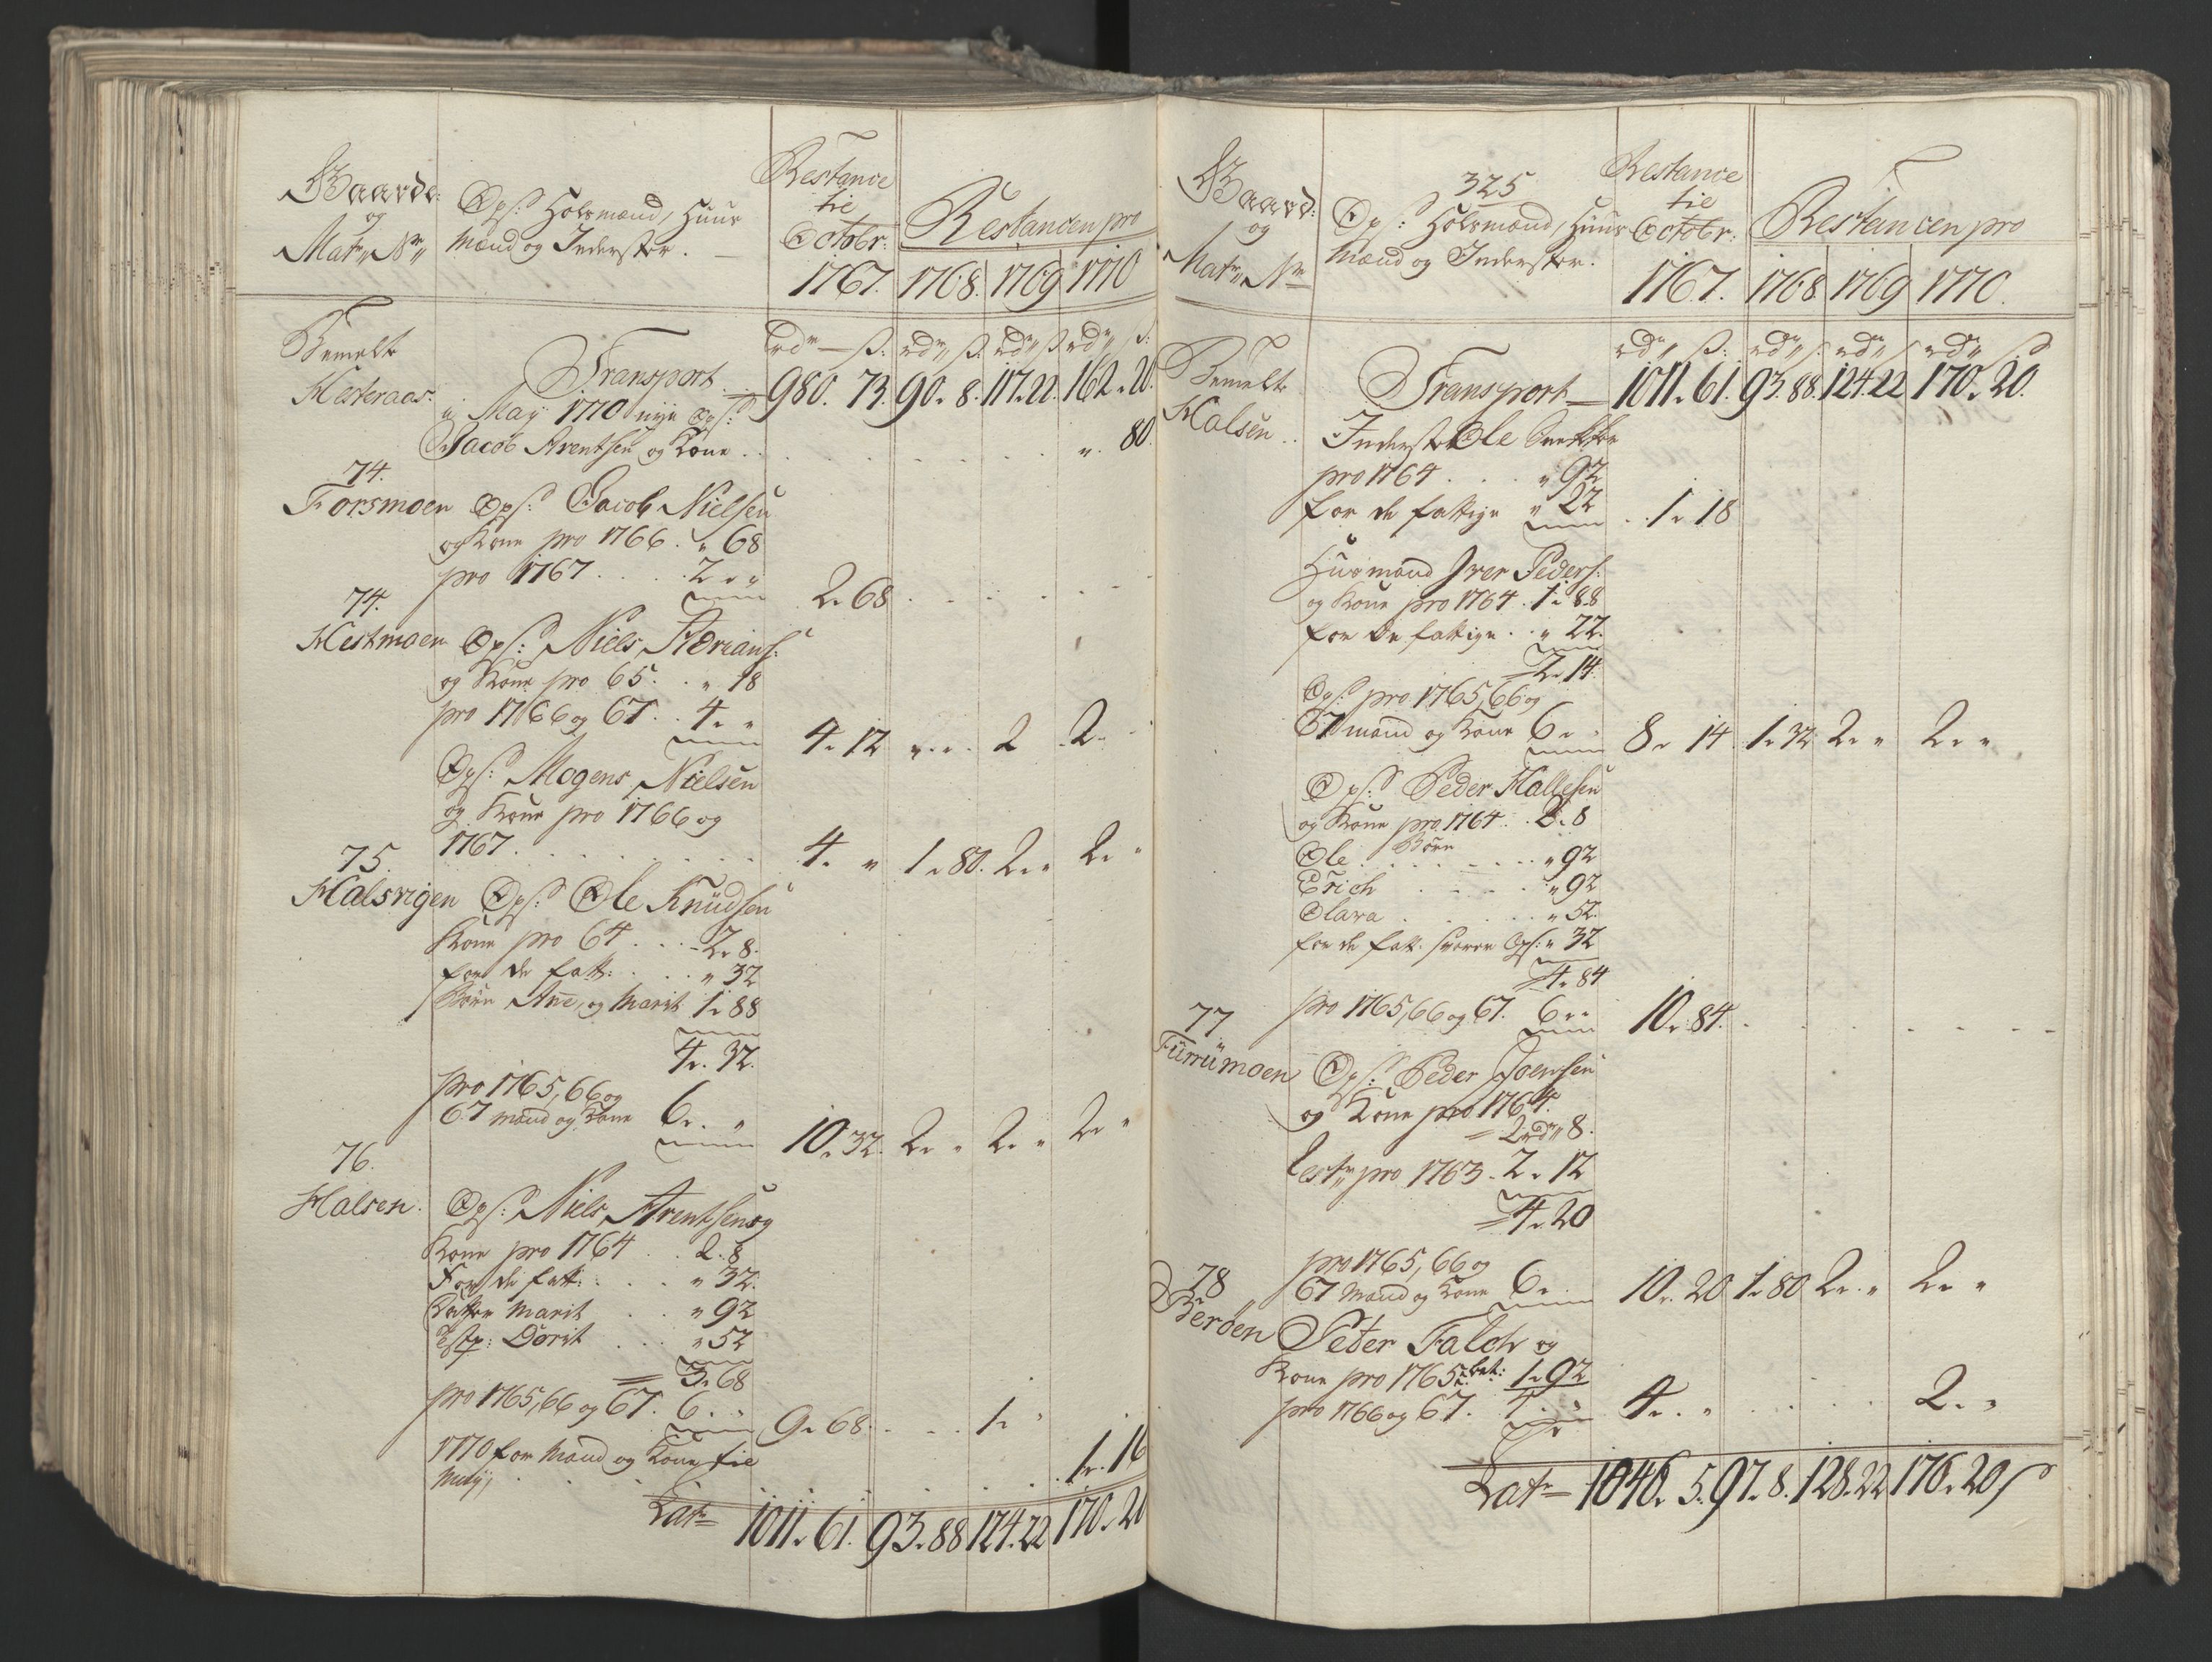 Gaarde:
og
Matr„ Nr„
Ops: Hosmænd, Huus
Mænd og Inderster.
Restance
til
Octobr:
1767.
Restancen pro
1768. 1769 1770
Bemelte
Hesteraas.
rdr — ß: rdr„ ß. rdr„ ß rdr„ ß:
Transport — 980. 73. 90. 8. 117. 22. 162. 20.
May 1770 nye Ops:
Jacob Arentsen og Kone . . „. 80.
74.
Forsmoen Ops: Jacob Nielsen
og Kone pro 1766 . „ 68
pro 1767 . . . . 2 „ „ 2. 68
74.
Hestmoen Ops: Niels
og Kone pro 65. . „ 18
pro 1766 og 67. . 4. „ 4. 12 „. „. 2 2.
Ops: Mogens Nielsen
og Kone pro 1766 og
1767. . . . 4. „ 1. 80. 2. „ 2. „
75.
Halsrigen Ops: Ole Knudsen
Kone pro 64 . . . 2. 8.
for de fatt: . . . „ 32
Børn Ane, og Marit 1. 88
4. 32.
pro 1765, 66 og
67 mand og Kone 6. „ 10. 32. 2. „ 2. „ 2. „
76.
Halsen. Ops: Niels Arentsen og
Kone pro 1764 . . 2. 8
For de fatt: . . . „ 32.
Marit . . „ 92
Dorit . . . „ 52
3. 68
pro 1765, 66 og 67. 6. „ 9. 68. . . . 1. „
1770 for Mand og Kone til
Maij . . . 1. 16
Latr 1011. 61. 93. 88 124. 22 170. 20
325
Gaard:
og
Matr„ Nr
Ops: Hosmænd, Huus
Mænd og Inderster.
Restance
til
Octobr:
1767.
Restancen pro
1768 1769 1770.
Bemelte
Halsen . .
rdr„ ß. rdr„ ß. rdr„ ß rdr„ ß
Transport — 1011. 61. 93. 88. 124. 22 170. 20.
Inderst Ole
pro 1764 . . . . „ 92
for de fattige „ 22 . . 1. 18
Husmand Iver Peders:
og Kone pro 1764 . 1. 88
for de fattige . . „ 22.
2. 14.
Ops: pro 1765, 66 og
67 mand og Kone 6. „ 8. 14 1. 32 2. „ 2. „
Ops: Peder Hallesen
og Kone pro 1764 . . 2. 8
Børn
Ole . . . . . „ 92
Erich . . . . „ 92
Olava . . . . „ 52.
for de fatt. Ops: „ 32
4. 84
pro 1765, 66 og 67. 6 „ „ 10. 84.
77
Furrumoen Ops: Peder Joensen
og Kone pro 1764.
2 rdr„ 8.
Rest„ pro 1763 . 2. 12
4. 20
pro 1765, 66 og
67 Mand og Kone 6. 10. 20 1. 80 2. „ 2. „
78
Berøen Peter Falch og
Kone pro 1765 bet: 1. 92
pro 1766 og 67. 4. „ 4. „ . . . . 2. „
Latr 1046. 5. 97. 8. 128. 22 176. 20 ß